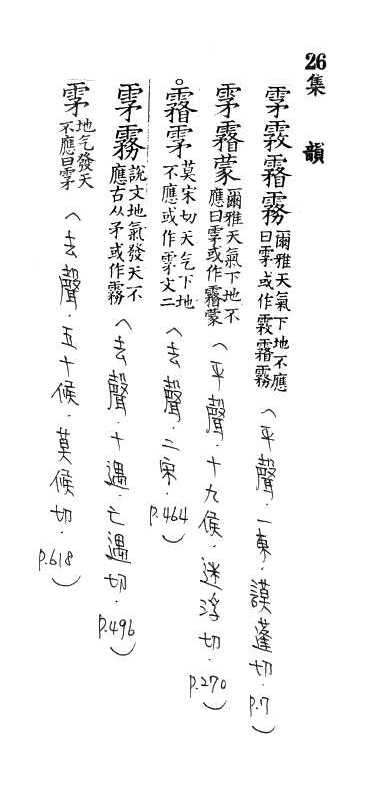 26
集韻
雺雺霿霧爾雅天氣下地不應曰雺或作雺霿霧(平聲.一東.謨蓬切.P.7)
雺霿蒙爾雅天氣下地不應曰雺或作霿蒙(平聲.十九侯.迷浮切.P.270)
霿雺莫宋切天气下地不應或作雺文二(去聲.二宋.P.464)
雺霧說文地氣發天不應古从矛或作霧(去聲.十遇.亡遇切.P.496)
雺地气發天不應曰雺(去聲.五十候.莫候切.P.618)